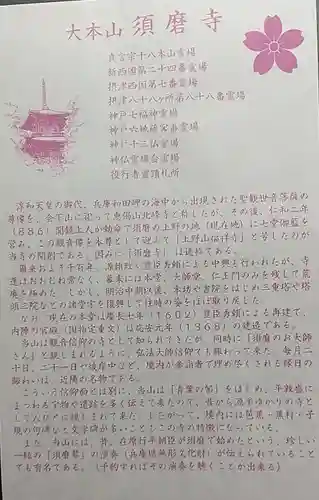 大本山 須磨寺
真言宗十八本山霊場
新西国第二十四番霊場
摂津西国第七番霊場
摂津八十八ヶ所第八十八番霊場
神戸七福神霊場
神戸六地蔵霊場
神戸十三仏霊場
神仏霊場会霊場
役行者霊蹟札所
淳和天皇の御代、兵庫和田岬の海中から出現された聖観世音菩薩の
尊像を、会下山に祀って恵偈山北峰寺と称したが、その後、仁和二年
(886)聞鏡上人が勅命で須磨の上野の地(現在地)に七堂伽藍を
営み、この観音像を本尊として迎えて「上野山福祥寺」と号したのが
当寺の開創である。因みに「須磨寺」は通称である。
爾来およそ千百年、源頼政、豊臣秀頼による再興も行われたが、寺
運はおおむね衰えて、幕末には本堂、大師堂、仁王門のみを残して荒
廃を極めた。しかし、明治中期以後、本坊や書院をはじめ三重塔や塔
頭三院などの諸堂宇を復興して往時の姿をほぼ取り戻した。
なお、現在の本堂は慶長七年(1602)豊臣秀頼による再建で、
内陣の宮殿(国指定重文)は応安元年(1368)の建造である。
当山は観音信仰の寺として知られてきたが、同時に「須磨のお大師
さん」と親しまれるように、弘法大師信仰でも賑わって来た。毎月二
十日、二十一日や彼岸中など、境内が参詣者で埋め尽くされる縁日の
賑わいは、近隣の名物である。
こういう信仰面とは別に、当山は「青葉の笛」をはじめ、平敦盛に
まつわる宝物や遺跡を多く伝えて来たので、昔から源平ゆかりの寺と
してひろく人に親しまれて来た。したがって、境内には芭蕉・蕪村・子
規の句碑など文学碑が多いこともこの寺の特徴になっている。
また、当山には、昔、在原行平朝臣が須磨で始めたという、珍しい
一絃の「須磨琴」の演奏(兵庫県無形文化財)が伝えられていること
でも有名である。(予約すればその演奏を聴くことが出来る)